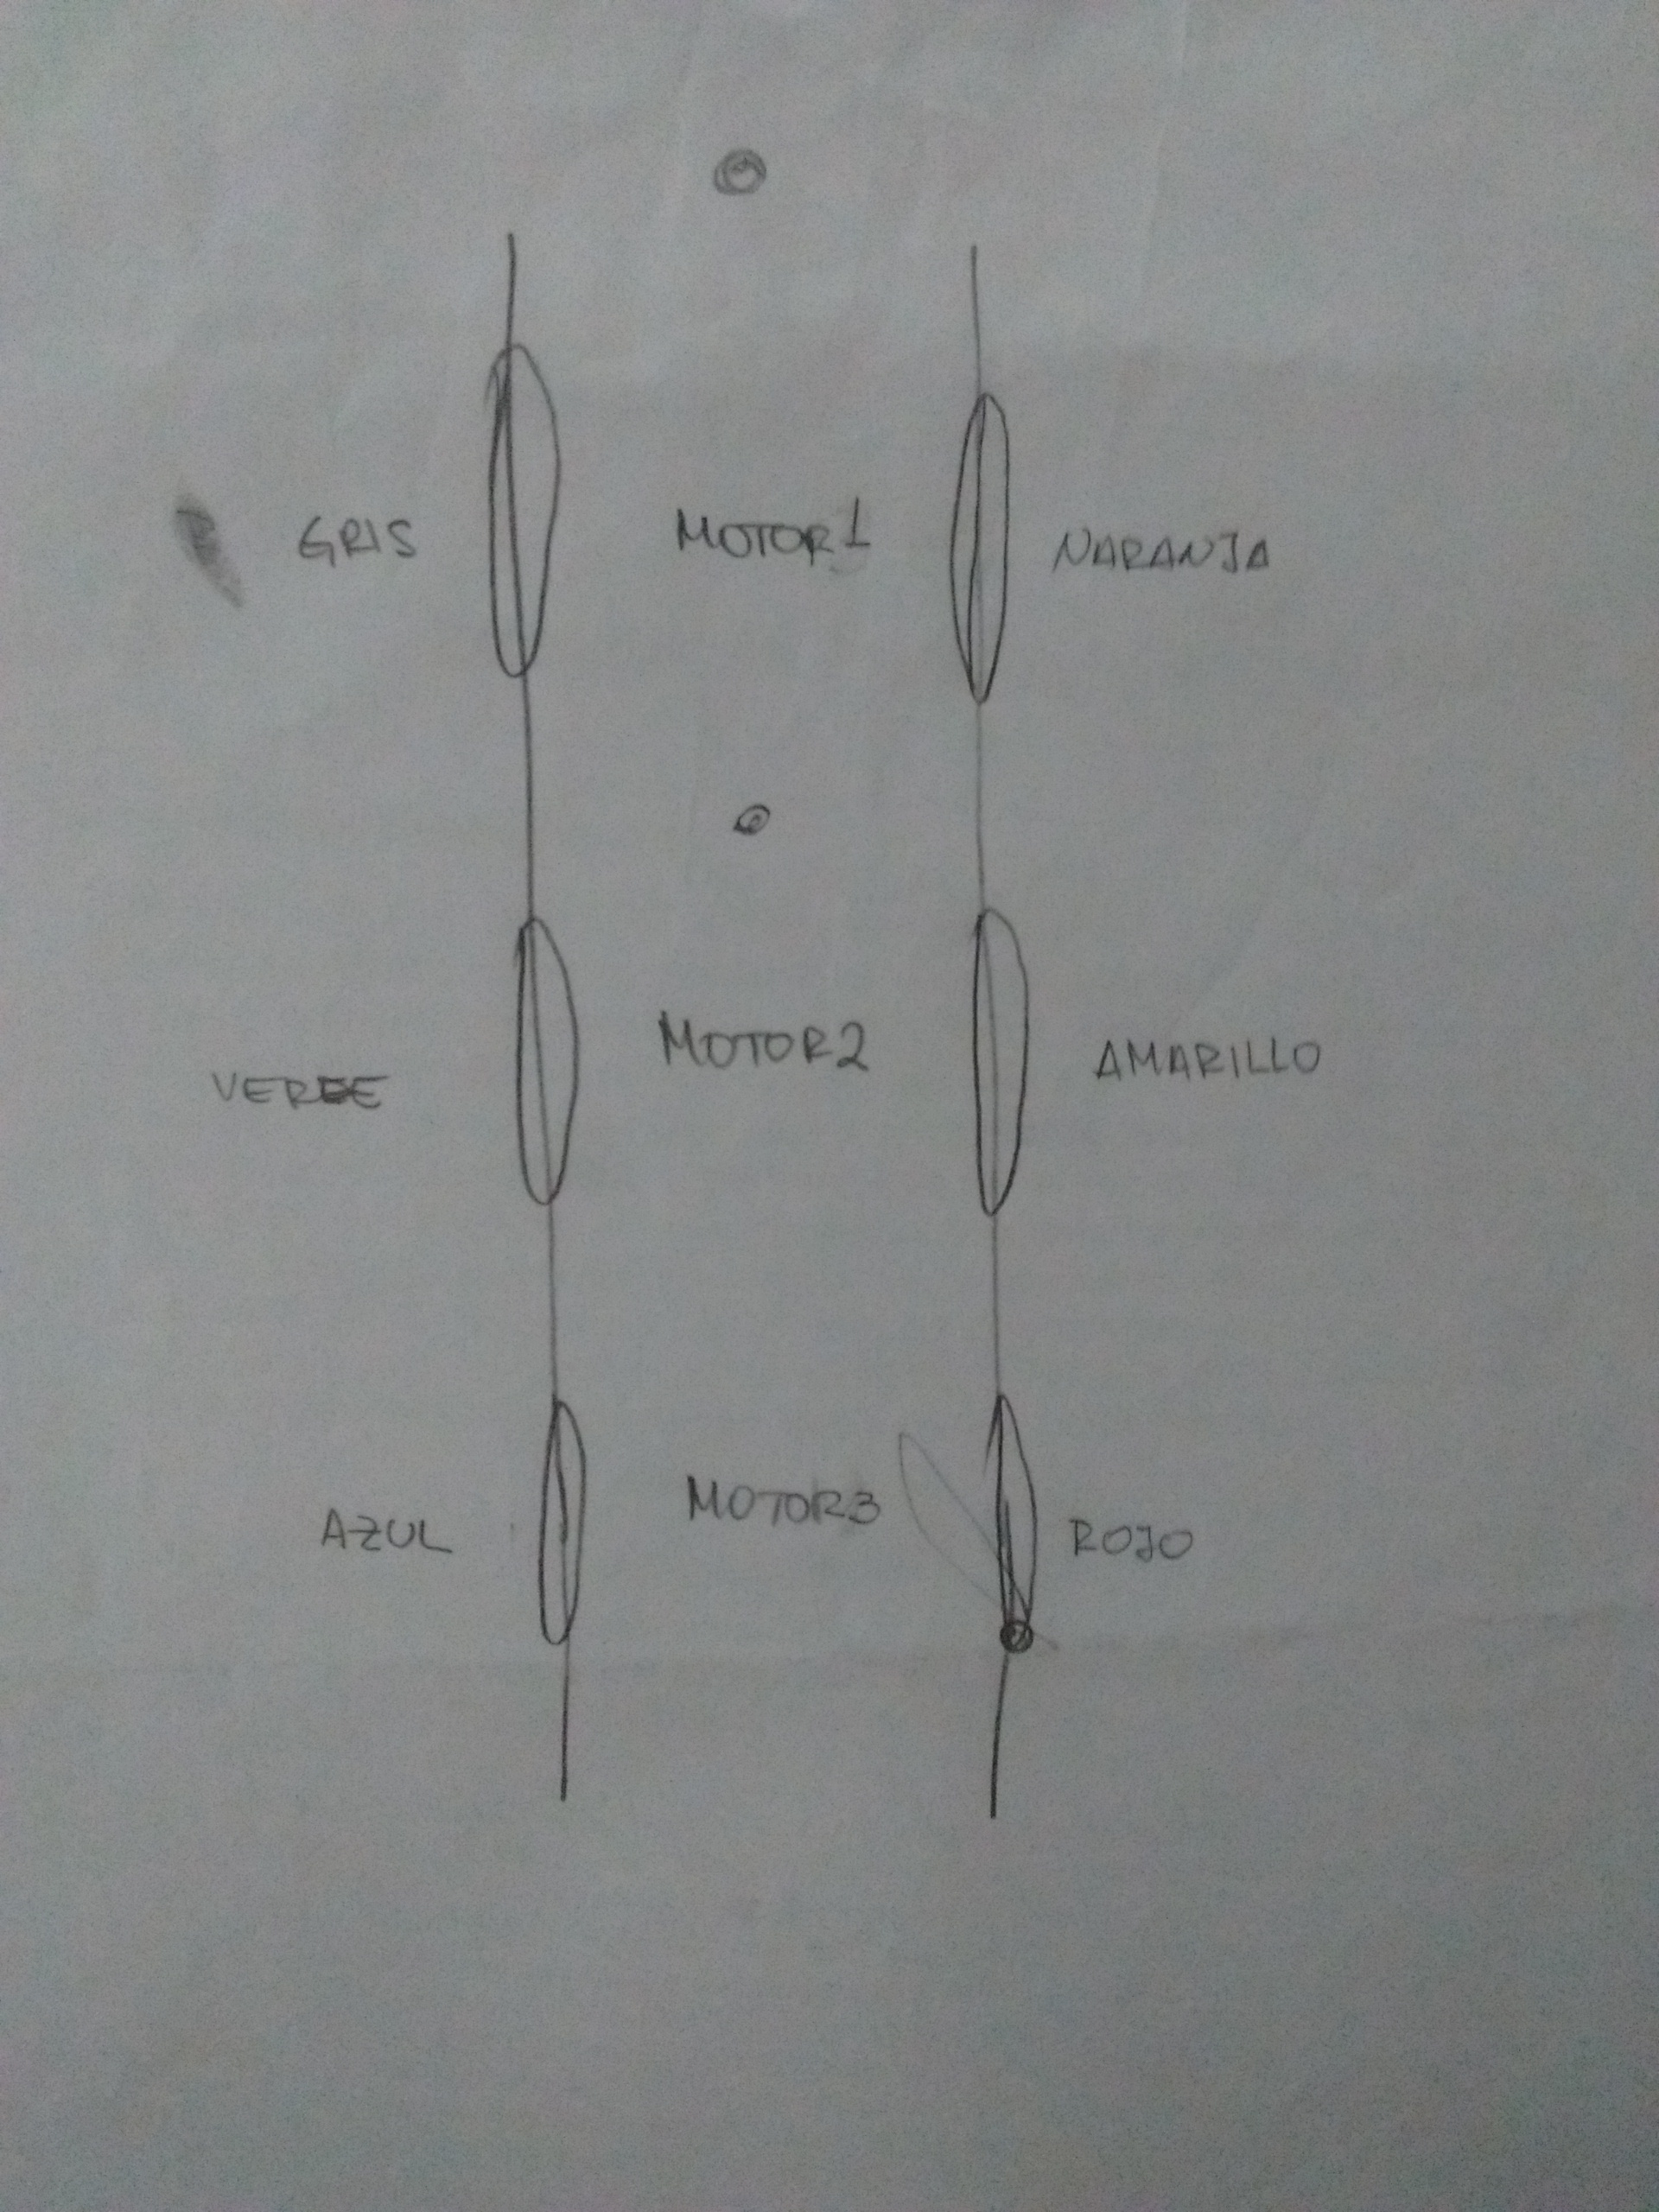 GRIS MOTOR1 NARANJA
VERDE MOTOR2 AMARILLO
AZUL MOTOR3 ROJO